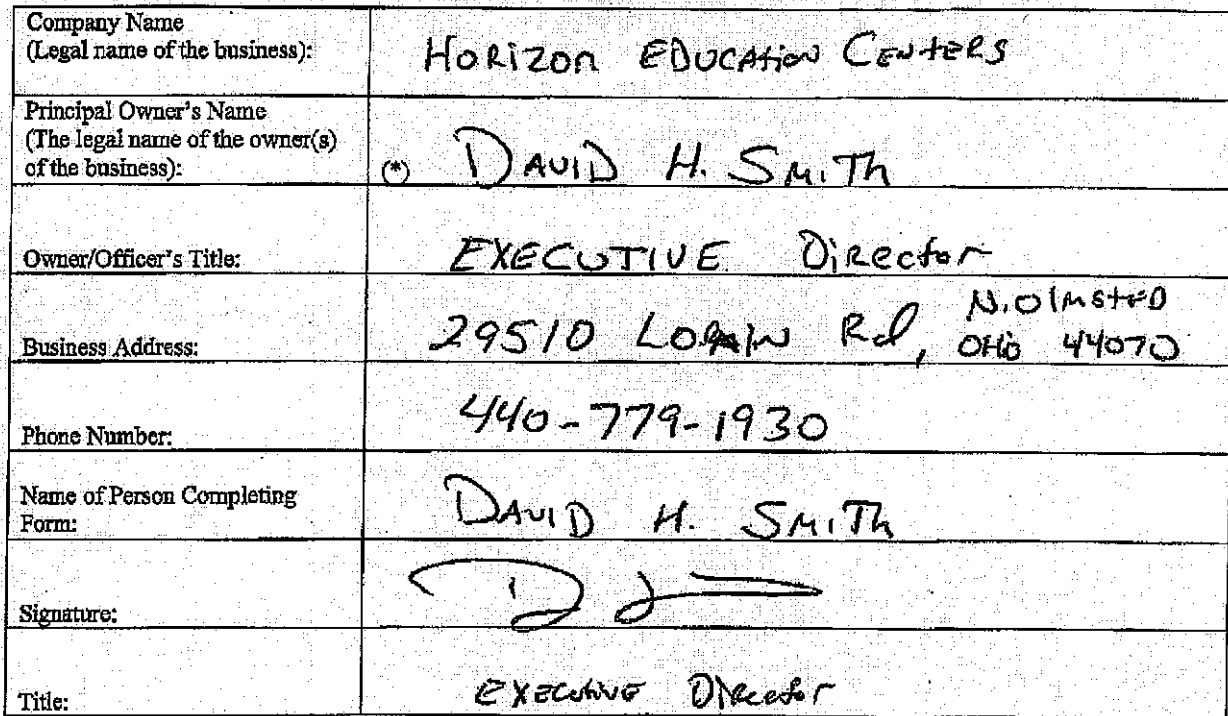 Company Name
(Legal name of the business):
Horizon Education Centers
Principal Owner's Name
(The legal name of the owner(s)
of the business):
(*) David H. Smith
Owner/Officer's Title:
Executive Director
Business Address:
29510 Lorain Rd, N. Olmsted
Ohio 44070
Phone Number:
440-779-1930
Name of Person Completing
Form:
David H. Smith
Signature:
Title:
Executive Director